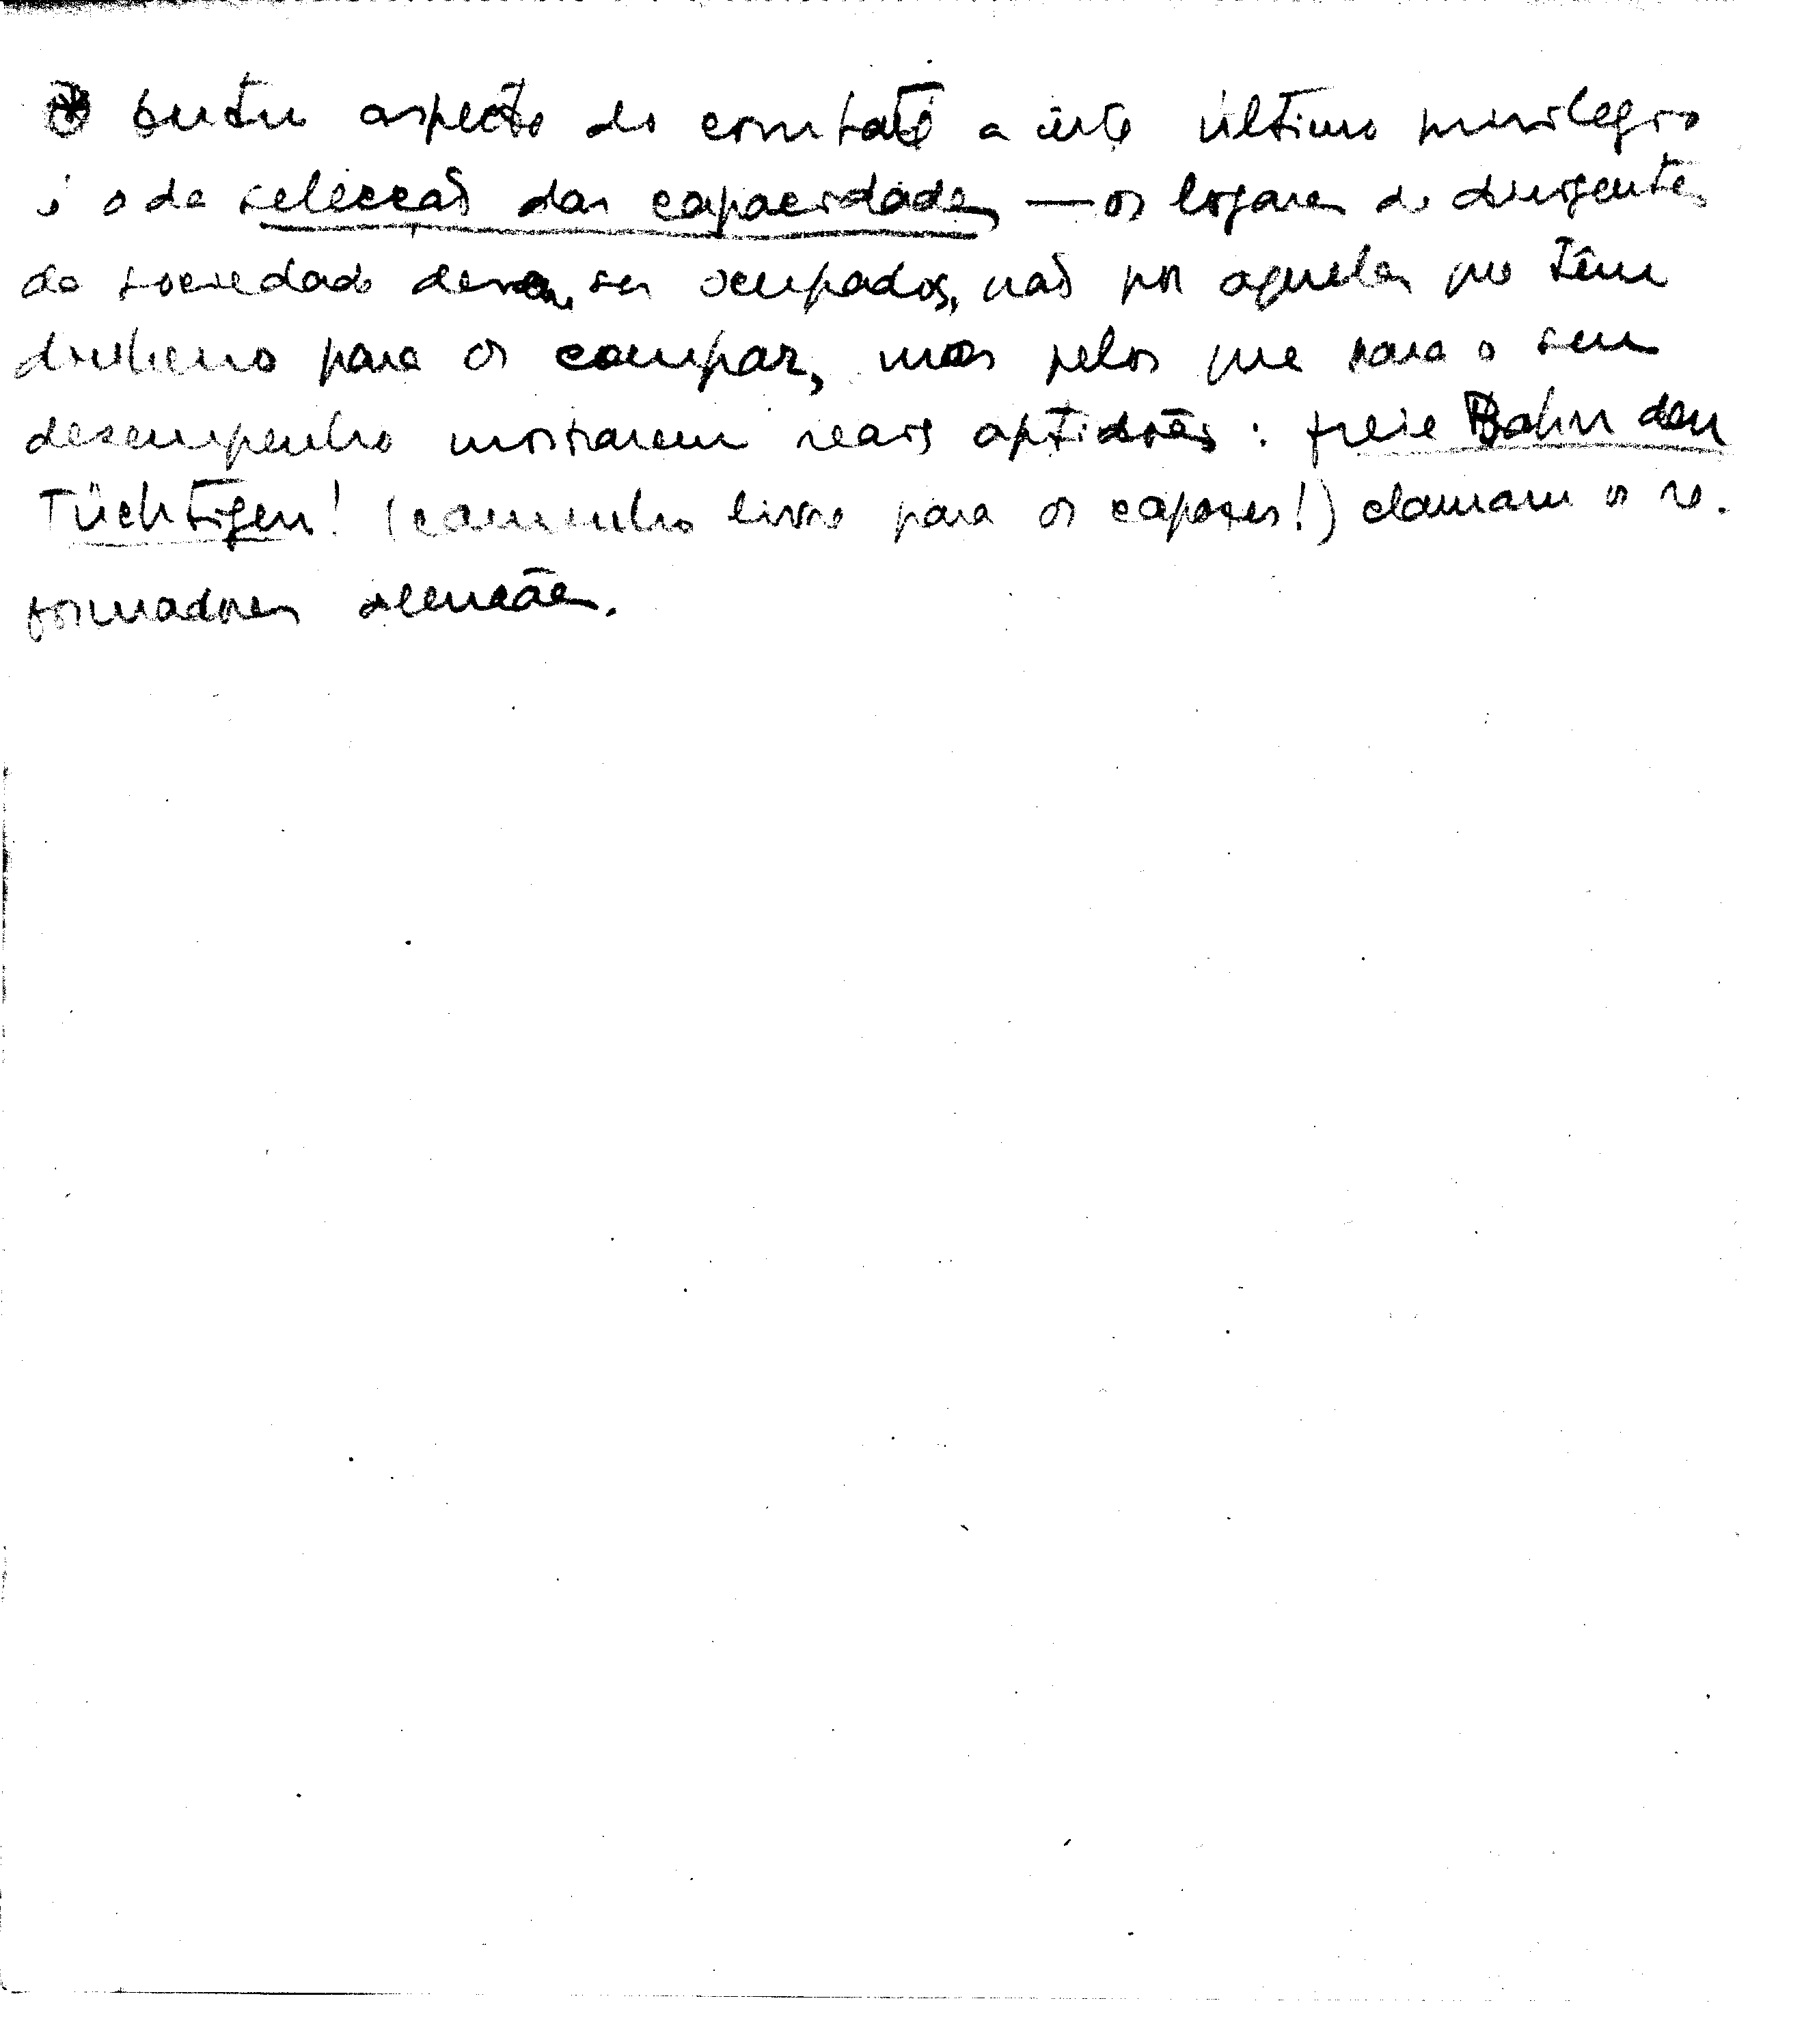 outro aspecto do combate a êste último privilegio
é o da selecçaõ das capacidades — os logares de dirigentes
da sociedade devem ser ocupados, naõ por aqueles que têm
dinheiro para os compar, mas pelos que para o seu
desempenho mostrarem reais aptidões : freie Bahn den
Tüchtigen! (caminho livre para os capazes!) clamam os re-
formadores alemães.